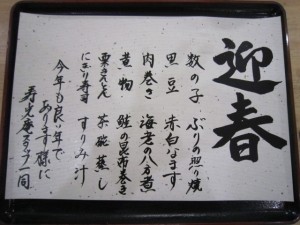 迎春
数の子 ぶりの照り焼
黒豆 赤白なます
肉巻き 海老の八方煮
煮物 鮭の昆布巻き
栗きんとん 茶碗蒸し
にぎり寿司 すりみ汁
今年も良い年で
あります様に
寿光庵スタッフ一同